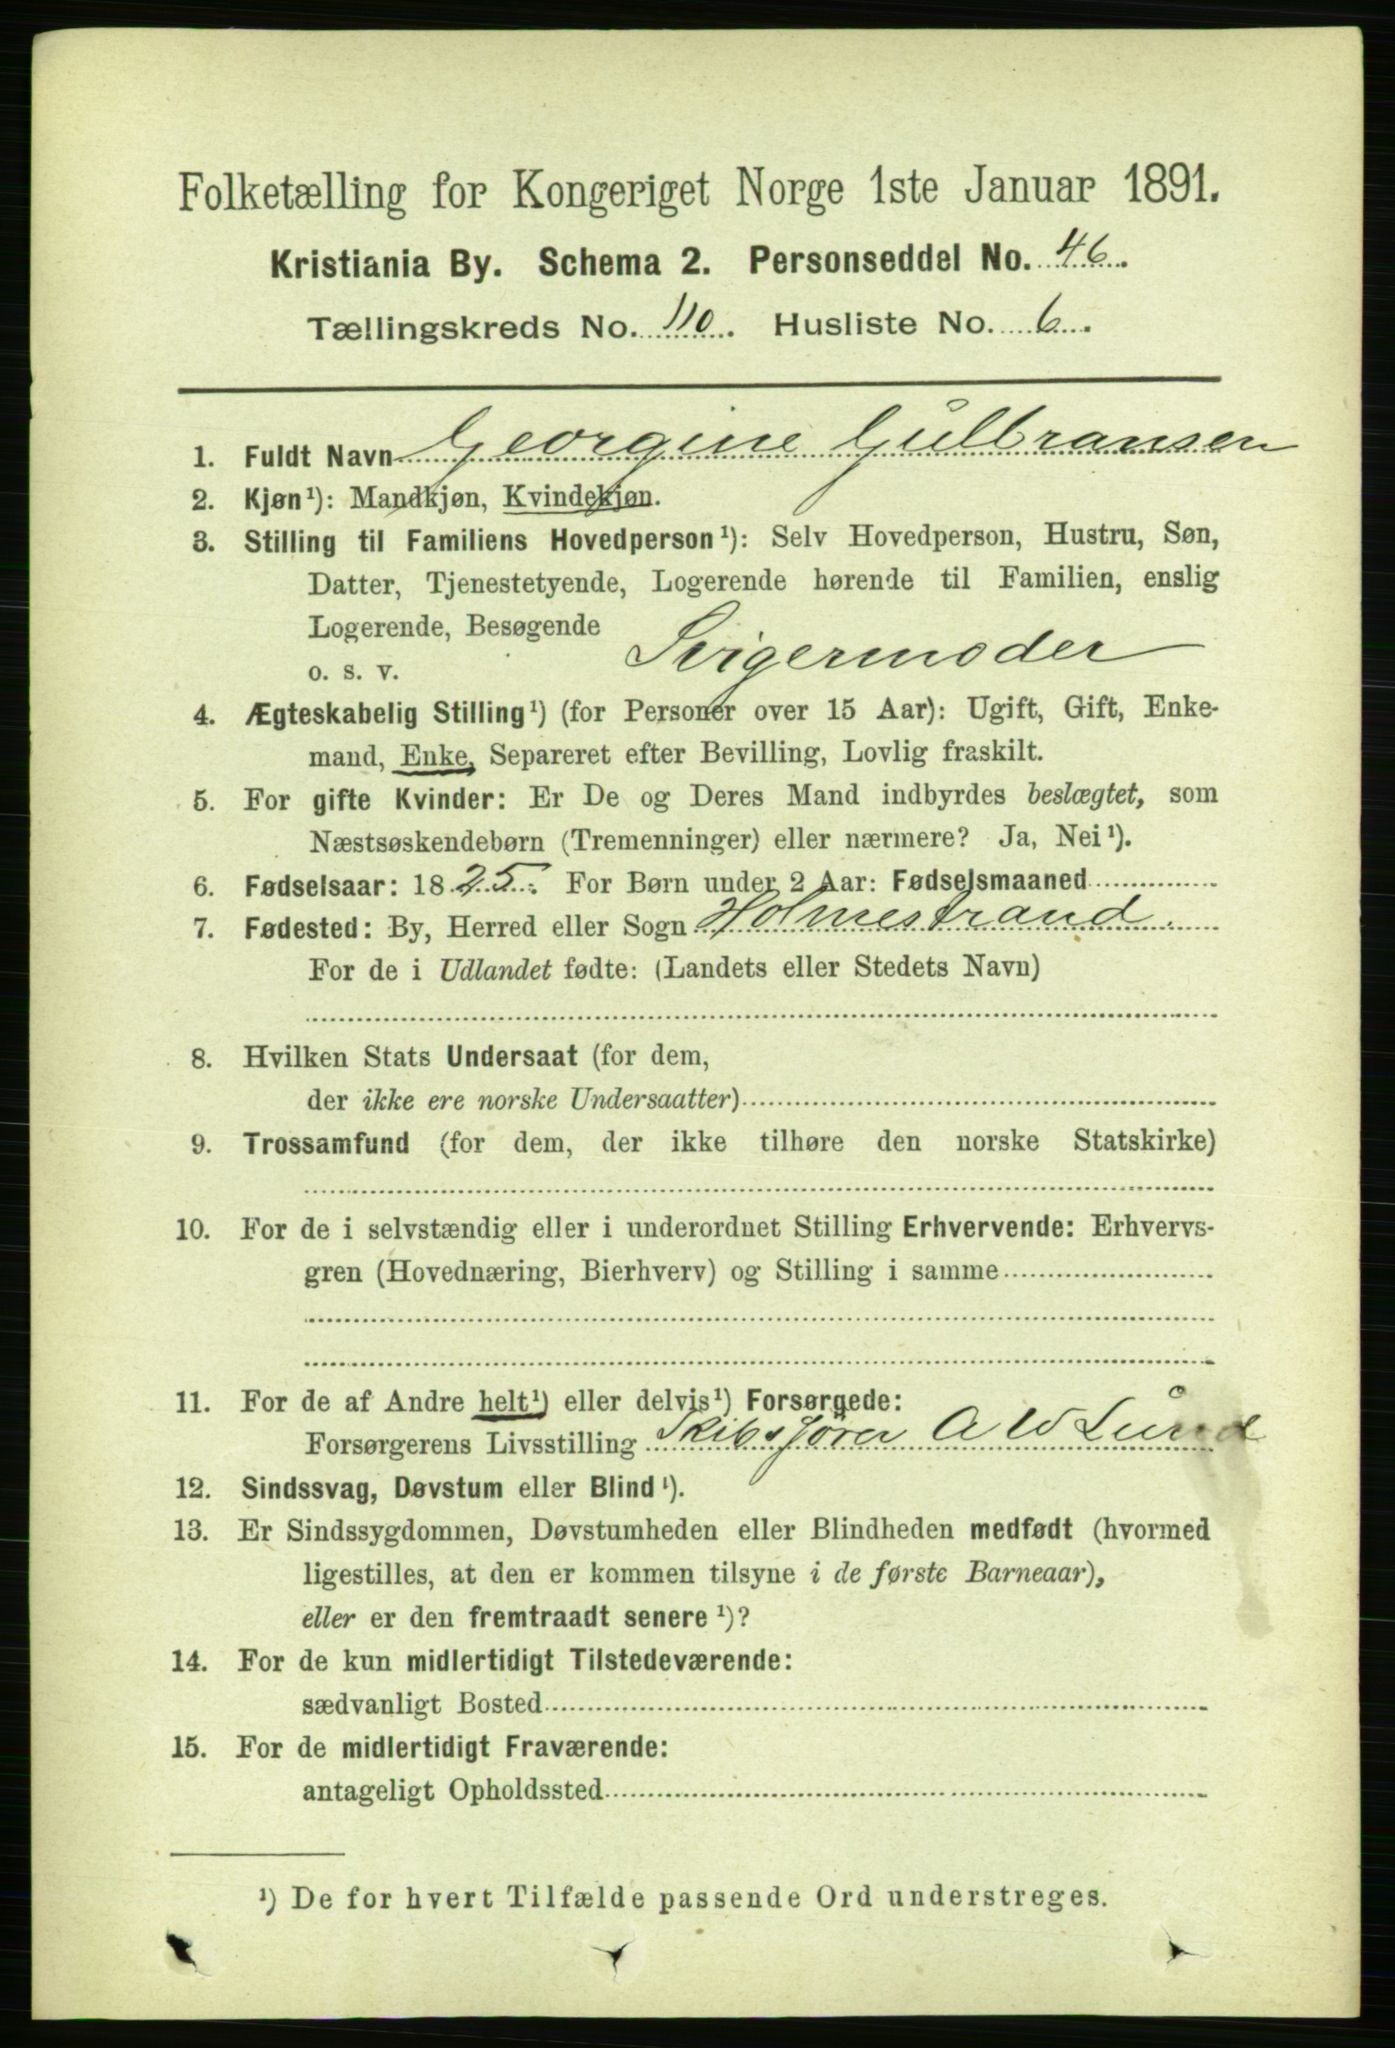 Folketælling for Kongeriget Norge 1ste Januar 1891.
Kristiania By. Schema 2. Personseddel No. 46.
Tællingskreds No. 110. Husliste No. 6.
1. Fuldt Navn Georgine Gulbransen
2. Kjøn¹): Mandkjøn, Kvindekjøn.
3. Stilling til Familiens Hovedperson¹): Selv Hovedperson, Hustru, Søn,
Datter, Tjenestetyende, Logerende hørende til Familien, enslig
Logerende, Besøgende
o. s. v. Svigermoder
4. Ægteskabelig Stilling¹) (for Personer over 15 Aar): Ugift, Gift, Enke-
mand, Enke, Separeret efter Bevilling, Lovlig fraskilt.
5. For gifte Kvinder: Er De og Deres Mand indbyrdes beslægtet, som
Næstsøskendebørn (Tremenninger) eller nærmere? Ja, Nei¹).
6. Fødselsaar: 1825. For Børn under 2 Aar: Fødselsmaaned
7. Fødested: By, Herred eller Sogn Holmestrand.
For de i Udlandet fødte: (Landets eller Stedets Navn)
8. Hvilken Stats Undersaat (for dem,
der ikke ere norske Undersaatter)
9. Trossamfund (for dem, der ikke tilhøre den norske Statskirke)
10. For de i selvstændig eller i underordnet Stilling Erhvervende: Erhvervs-
gren (Hovednæring, Bierhverv) og Stilling i samme
11. For de af Andre helt¹) eller delvis¹) Forsørgede:
Forsørgerens Livsstilling Skibsfører A W Lund
12. Sindssvag, Døvstum eller Blind¹).
13. Er Sindssygdommen, Døvstumheden eller Blindheden medfødt (hvormed
ligestilles, at den er kommen tilsyne i de første Barneaar),
eller er den fremtraadt senere¹)?
14. For de kun midlertidigt Tilstedeværende:
sædvanligt Bosted
15. For de midlertidigt Fraværende:
antageligt Opholdssted
¹) De for hvert Tilfælde passende Ord understreges.